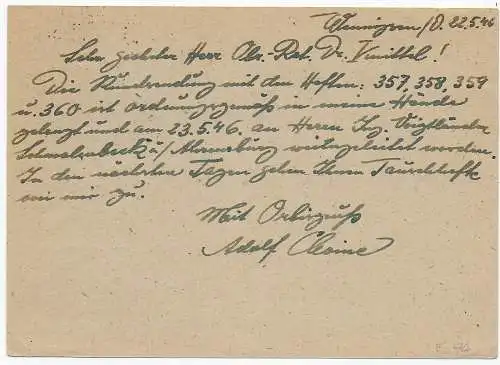 Wennigsen/D. 22.5.46
Sehr geehrter Herr Ob.-Rat. Dr.
Die Rundsendung mit den Heften: 357, 358, 359
u. 360 ist ordnungsgemäß in meine Hände
gelangt und am 23.5.46. an Herrn Ing. Voigtländer
Schmalenbeck ü/ Ahrensburg weitergeleitet worden.
In den nächsten Tagen gehen Ihnen Tauschhefte
von mir zu.
Mit
Adolf